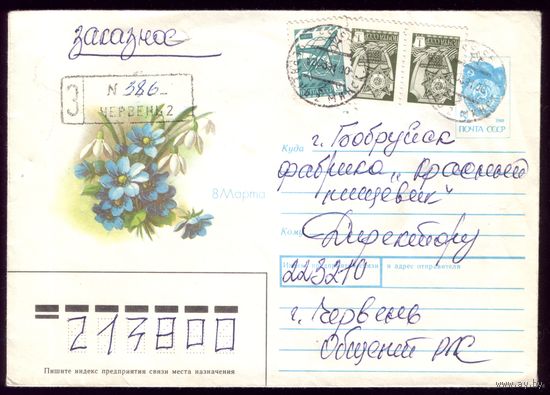 заказное
З
N 386
ЧЕРВЕНЬ 2
8 Марта
ПОЧТА СССР
Куда
г. Бобруйск
фабрика „Красный
пищевик"
Кому
Директору
223210
и адрес отправителя
г. Червень
Общепит РЖ
213800
Пишите индекс предприятия связи места назначения
www.ay.by